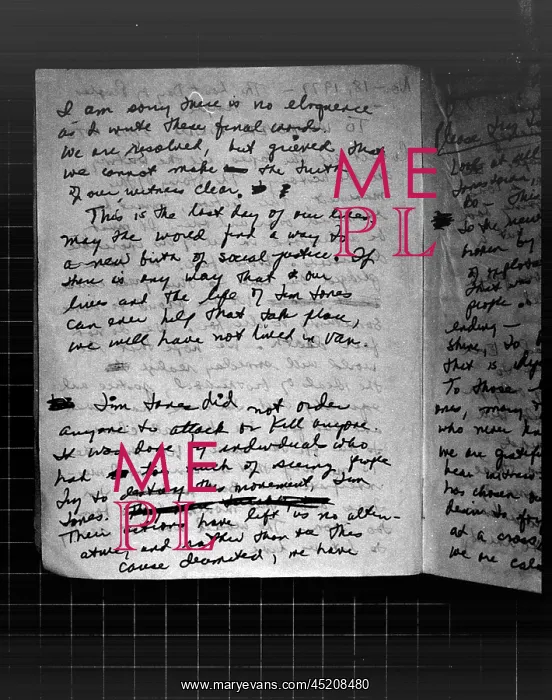 I am sorry there is no eloquence
as I write these final words.
We are resolved, but grieved that
we cannot make the truth
of our witness clear.
This is the last day of our lives.
May the world find a way to
a new birth of social justice. If
there is any way that our
lives and the life of Jim Jones
can ever help that take place,
we will have not lived in vain.
Jim Jones did not order
anyone to attack or kill anyone.
It was done by individual who
had too much of seeing people
try to destroy this movement, Jim
Jones.
Their actions have left us no alter-
ative, and rather than see this
cause decimated, we have
Look at all
Jonestown,
To the
broken by
of
that was
people
ending —
shine, to
that is
To those
ones, many
who never
we are
bear witness
has chosen
desire to
at a cross
we are
ME
PL
ME
PL
www.maryevans.com/45208480